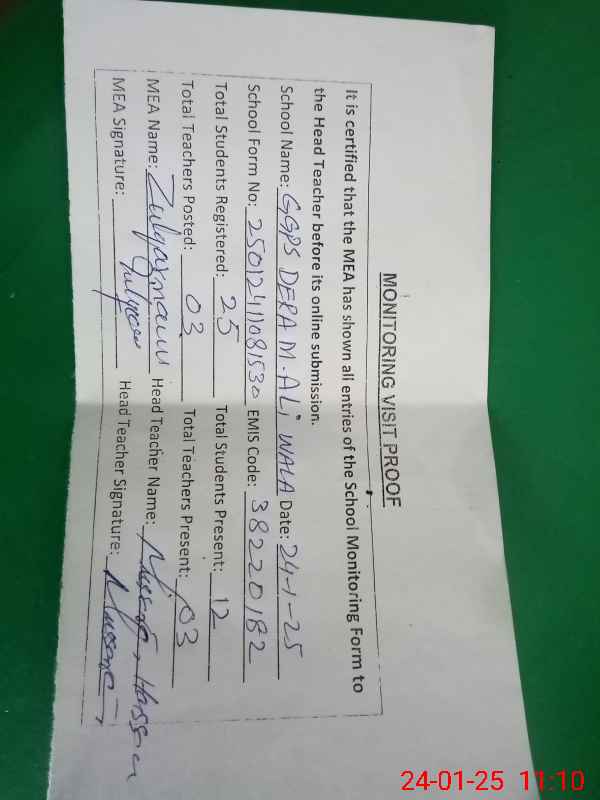 MONITORING VISIT PROOF
It is certified that the MEA has shown all entries of the School Monitoring Form to
the Head Teacher before its online submission.
School Name: GGPS DERA M.ALi WALA Date: 24-1-25
School Form No: 25012411081530 EMIS Code: 38220182
Total Students Registered: 25 Total Students Present: 12
Total Teachers Posted: 03 Total Teachers Present: 03
MEA Name: Zulqarnain Head Teacher Name: Hassan
MEA Signature: Head Teacher Signature:
24-01-25 11:10